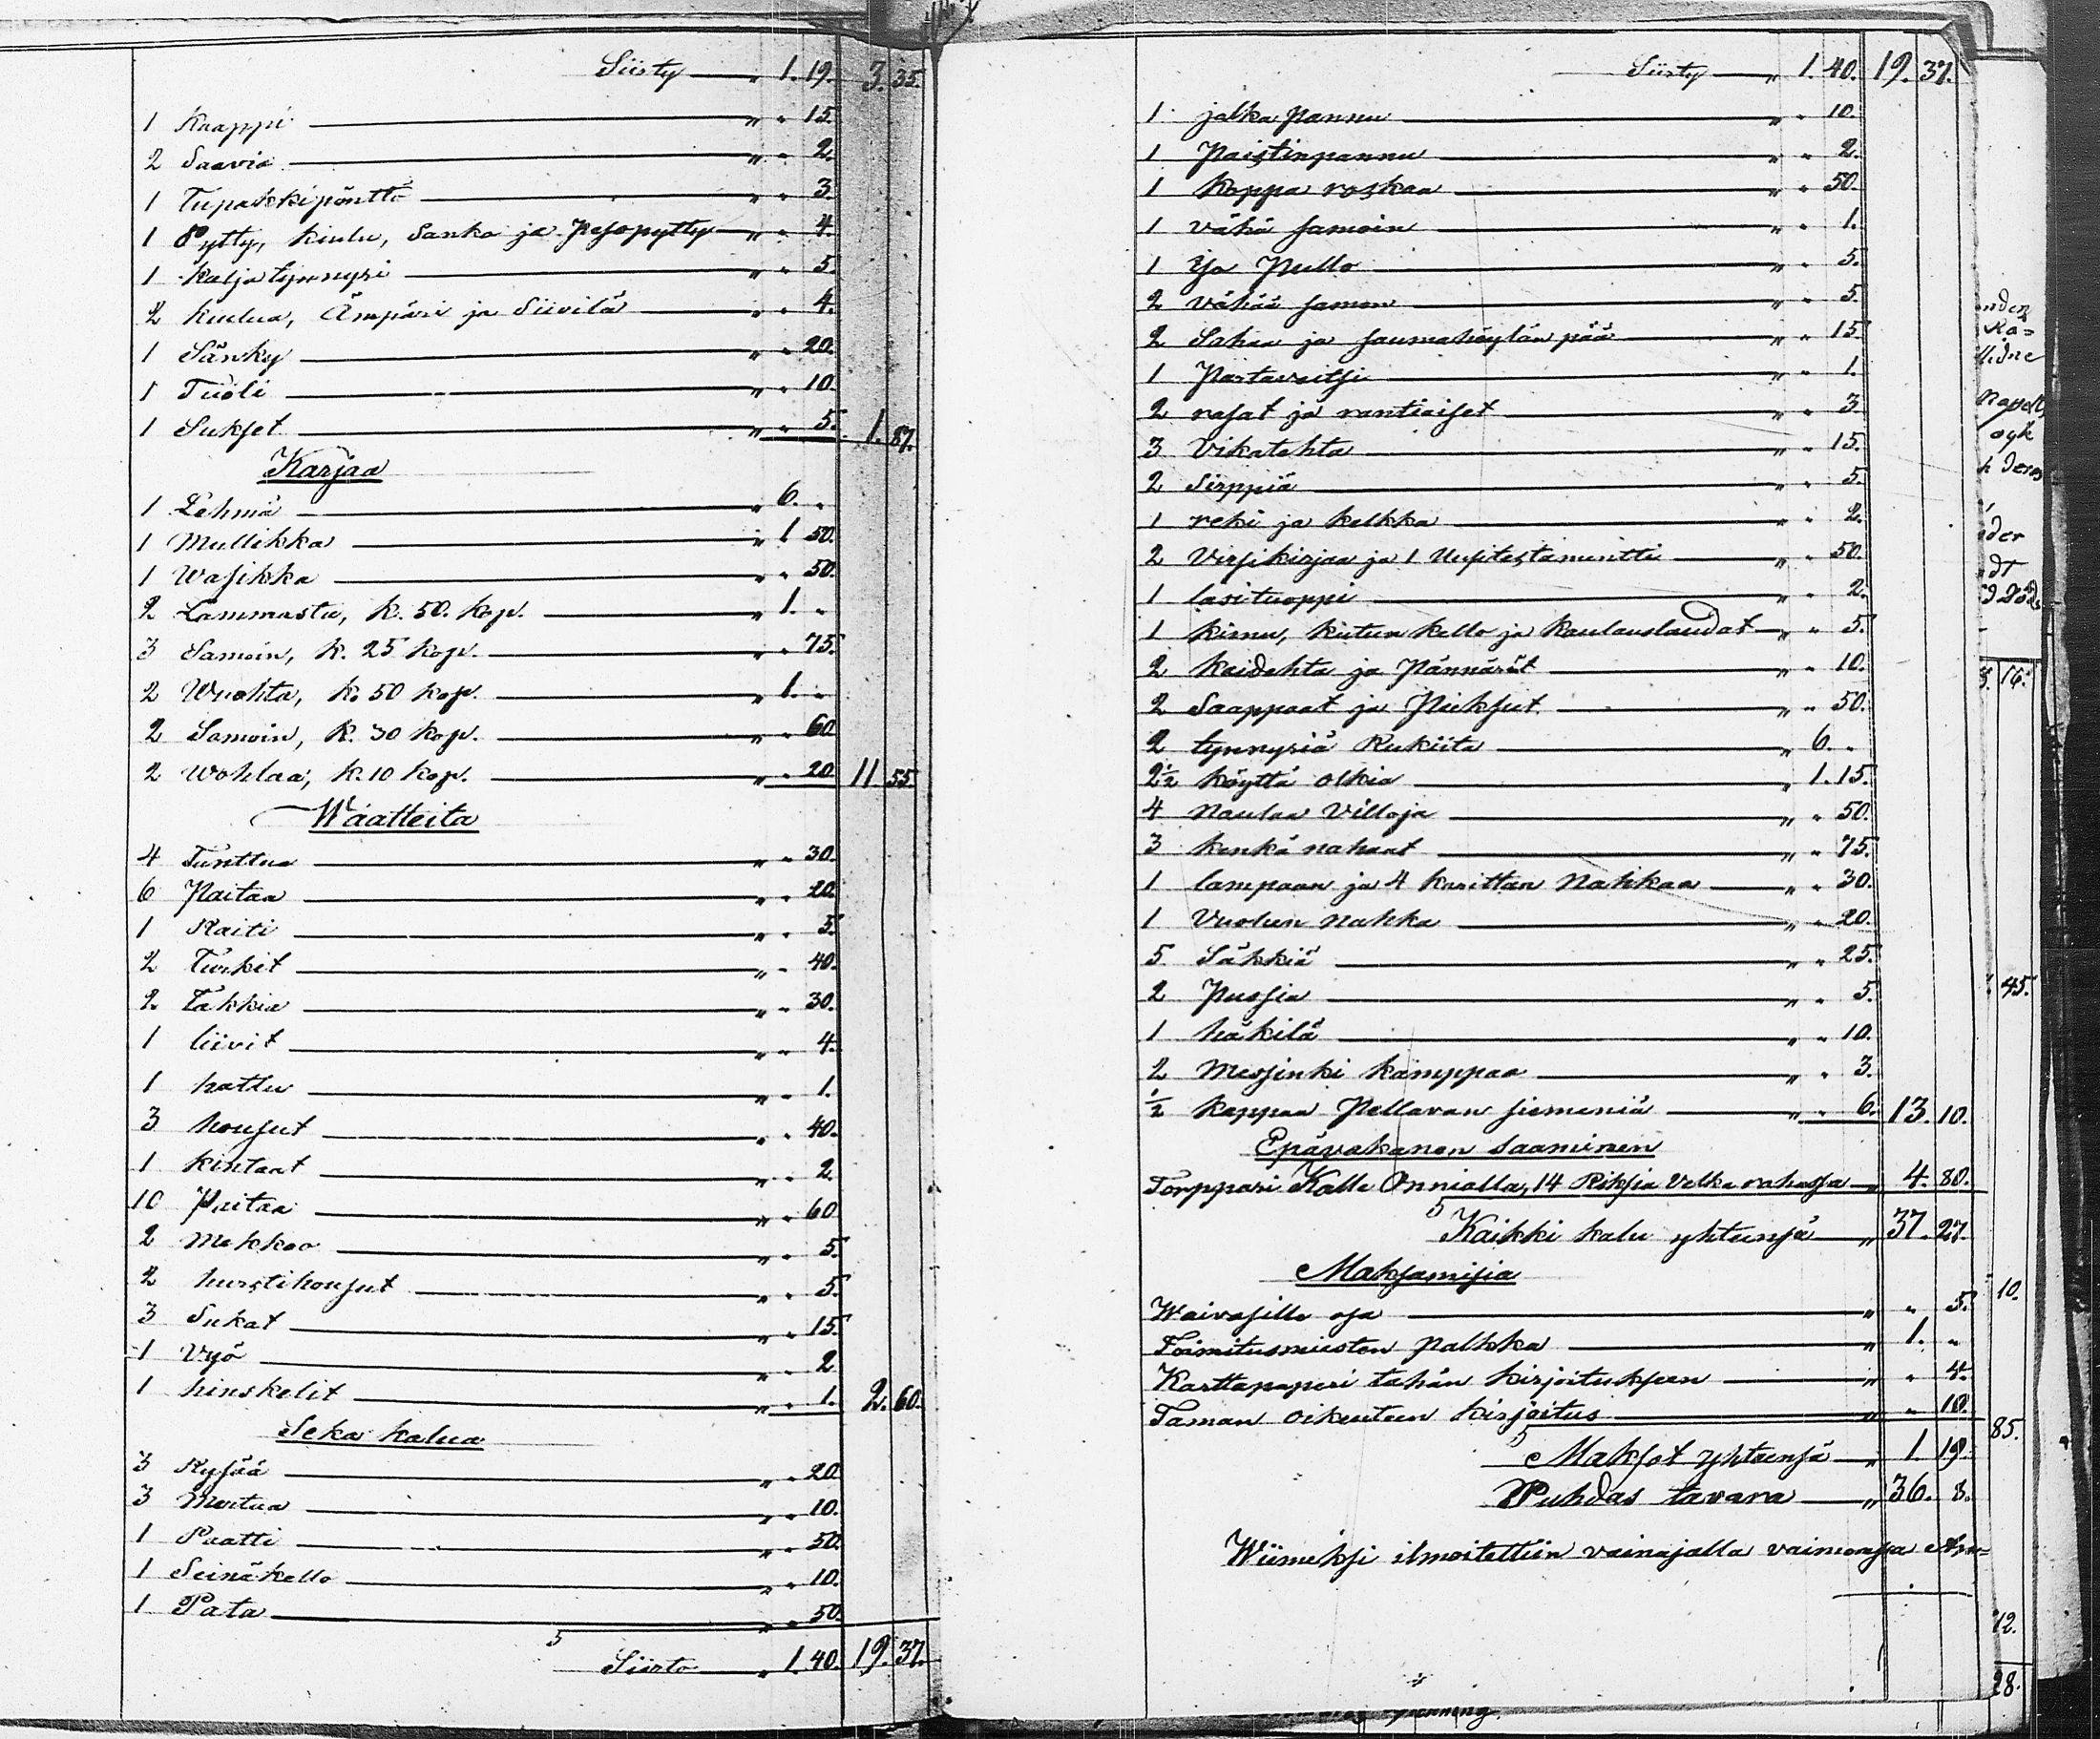 Siirty „ 1. 19. 3. 35.
1 Kaappi „ „ 15.
2 Saavia „ „ 2.
1 Tupakkipönttö „ „ 3.
1 Pytty, kiulu, Sanko ja Pesopytty „ „ 4.
1 Kaljatynnyri „ „ 5.
2 kiulua, Ämpäri ja Siivilä „ „ 4.
1 Sänky „ „ 20.
1 Tuoli „ „ 10.
1 Sukset „ „ 5. 1. 87.
Karjaa
1 Lehmä „ 6. „
1 Mullikka „ 1 50.
1 Wasikka „ „ 50.
2 Lammasta, k. 50. kop. „ 1. „
3 Samoin, k. 25 kop. „ „ 75.
2 Wuohta, k. 50 kop. „ 1. „
2 Samoin, k. 30 kop. „ „ 60
2 Wohlaa, k. 10 kop. „ „ 20 11. 55.
Waatteita
4 Turttua „ „ 30.
6 Paitaa „ „ 20.
1 Raiti „ „ 5.
2 Turkit „ „ 40.
2. Takkia „ „ 30.
1 liivit „ „ 4.
1 hattu „ „ 1.
3 housut „ „ 40.
1 kintaat „ „ 2.
10 Paitaa „ „ 60
2 Mekkoo „ „ 5.
2 hurstihousut „ „ 5.
3 Sukat „ „ 15.
1 Vyö „ „ 2
1 hinskelit „ „ 1. 2. 60.
Seka kalua
3 Rysää „ „ 20
3 Mertaa „ „ 10.
1 Paatti „ „ 50.
1 Seinäkello „ „ 10.
1 Pata „ „ 50.
Siirto „ 1. 40. 19. 37.
Siirty „ 1. 40. 19. 37.
1 jalka pannu „ „ 10.
1 Paistinpannu „ „ 2.
1 Koppa roskaa „ „ 50.
1 vähä samoin „ „ 1.
1 iso Pullo „ „ 5.
2 vähää samon „ „ 5.
2 Sahaa ja saumahöylän pää „ „ 15.
1 Partaveitsi „ „ 1.
2 rasat ja rantiaiset „ „ 3
3 Vikatehta „ „ 15.
2 Sirppiä „ „ 5.
1 reki ja kelkka „ „ 2.
2 Virsikirjaa ja 1 Uusitestamentti „ „ 50.
1 lasituoppi „ „ 2.
1 kirnu, kutun kello ja kaulauslaudat „ „ 5.
2 Keidehta ja Pännärit „ „ 10.
2 Saappaat ja Pieksut „ „ 50.
2 tynnyriä Rukiita „ 6. „
2½ köyttä olkia „ 1. 15.
4 Naulaa Villoja „ „ 50.
3 kenkä nahaat „ „ 75.
1 lampaan ja 4 karittan Nahkaa „ „ 30.
1 Vuohen nahka „ „ 20.
5 Säkkiä „ „ 25.
2 Pussia „ „ 5.
1 häkilä „ „ 10.
2 Messinki kamppaa „ „ 3.
½ kappaa Pellavan siemeniä „ „ 6. 13. 10.
Epävakanen saaminen
Torppari Kalle Onnialla, 14 Riksia Velka rahassa „ 4. 80.
Kaikki kalu yhteensä „ 37. 27.
Maksamisia
Waivasille osa „ „ 5.
Toimitusmiesten Palkka „ 1. „
Karttapaperi tähän kirjoitukseen „ „ 4.
Tämän oikeuteen kirjoitus „ „ 10.
Maksot yhteensä „ 1. 19.
Puhdas tavara „ 36. 8.
Wiimeksi ilmoitettiin vainajalla vaimonsa
nder
oyk
3. 16.
45.
10.
85.
12.
28.